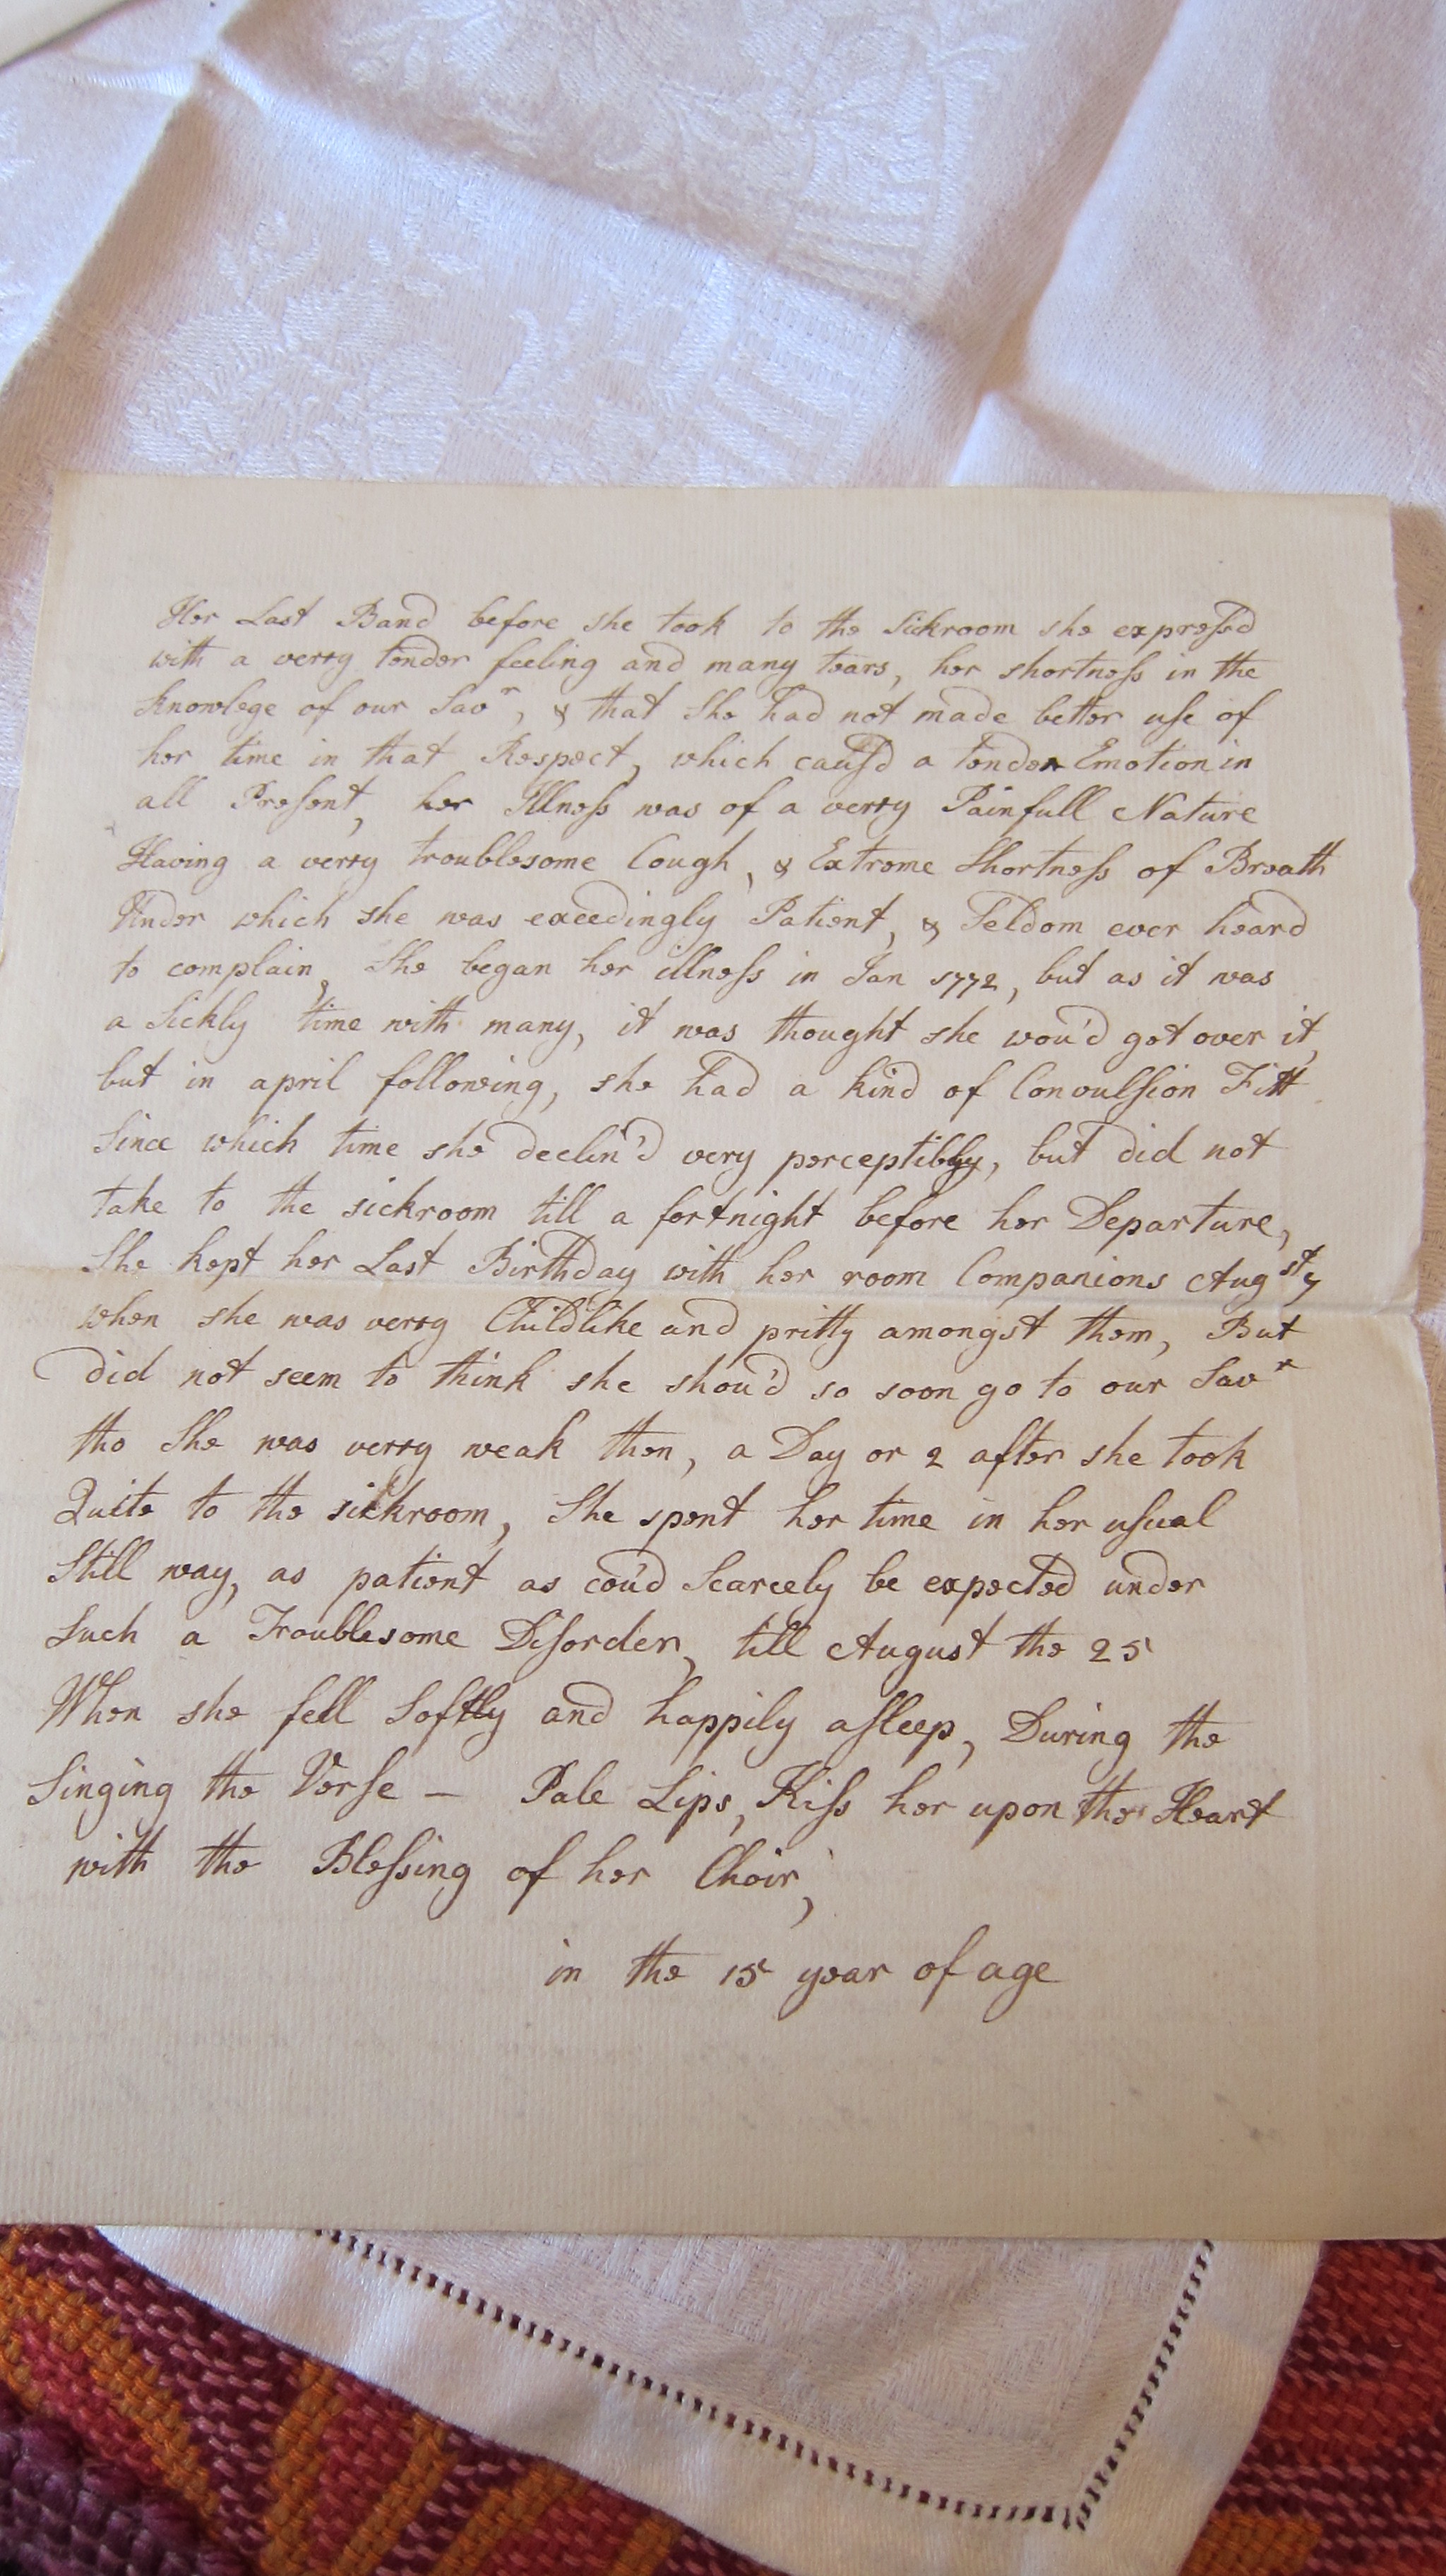 Her Last Band before she took to the Sickroom she expresed
with a verry tender feeling and many tears, her shortness in the
Knowlege of our Savr, & that she had not made better use of
her time in that Respect, which caus'd a tender Emotion in
all Present, her Illness was of a verry Painfull Nature
Having a verry troublesome Cough, & Extreme Shortness of Breath
Under which she was exeedingly Patient, & Seldom ever heard
to complain, She began her illness in Jan 1772, but as it was
a Sickly time with many, it was thought she wou'd get over it,
but in april following, she had a kind of Convulsion Fitt
Since which time she declin'd very perceptibly, but did not
take to the sickroom till a fortnight before her Departure,
She kept her Last Birthday with her room Companions Augst 7
when she was verry Childlike and pritty amongst them, But
did not seem to think she shou'd so soon go to our Savr
tho She was verry weak then, a Day or 2 after she took
Quite to the sickroom, She spent her time in her usual
Still way, as patient as cou'd Scarcely be expected under
Such a Troublesome Disorder, till August the 25
When she fell Softly and happily asleep, During the
Singing the Verse – Pale Lips, Kiss her upon the Heart
with the Blessing of her Choir,
in the 15 year of age